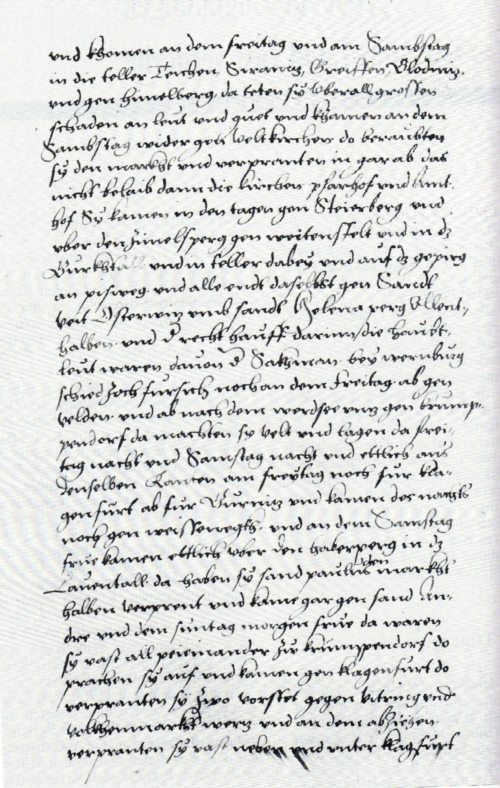 vnd khomen an dem freitag vnd am Sambstag
in die teller Teichen, Sirnitz, Greiffen, Glodnitz,
vnd gen himelberg, da teten sy vberall grossen
schaden an leut vnd guet vnd khamen an dem
Sambstag wider gen veltkirchen do beraubten
sy den markht vnd verpranten in gar ab das
nicht belaib dann die kirchen pfarhof vnd Amt-
hof Sy kamen in den tagen gen Steierberg vnd
vber den Zimelsperg gen weitenstelt vnd in dz
vnd in teller dabey vnd auf dz gepirg
an pisweg vnd alle endt daselbst gen Sandt
veit Osterwitz vmb sandt Helena perg Allent-
halben vnd d recht hauff darinn die haubt-
leut waren dauon d Sakhman bey wernburg
schied zoch fursich noch an dem Freitag ab gen
velden vnd ab nach dem werdsee vnz gen krump-
pendorf da machten sy velt vnd lagen da frei-
tag nacht vnd Samstag nacht vnd ettlich aus
denselben kamen am freytag noch fur kla-
genfurt ab fur vnd kamen des nachts
noch gen weissenegkh vnd an dem Samstag
frue kamen ettlich vber den haberperg in dz
Lauentall da haben sy sand paulus den markht
halben verprent vnd kame gar gen sand An-
dre vnd dem suntag morgen frue da waren
sy vast all peieinander zu krumppendorf do
prachen sy auf vnd kamen gen klagenfurt do
verpranten sy zwo vorstet gegen vitring vnd
volkhenmarkht wertz vnd an dem abziehen
verpranten sy vast neben vnd vnter klagfurt